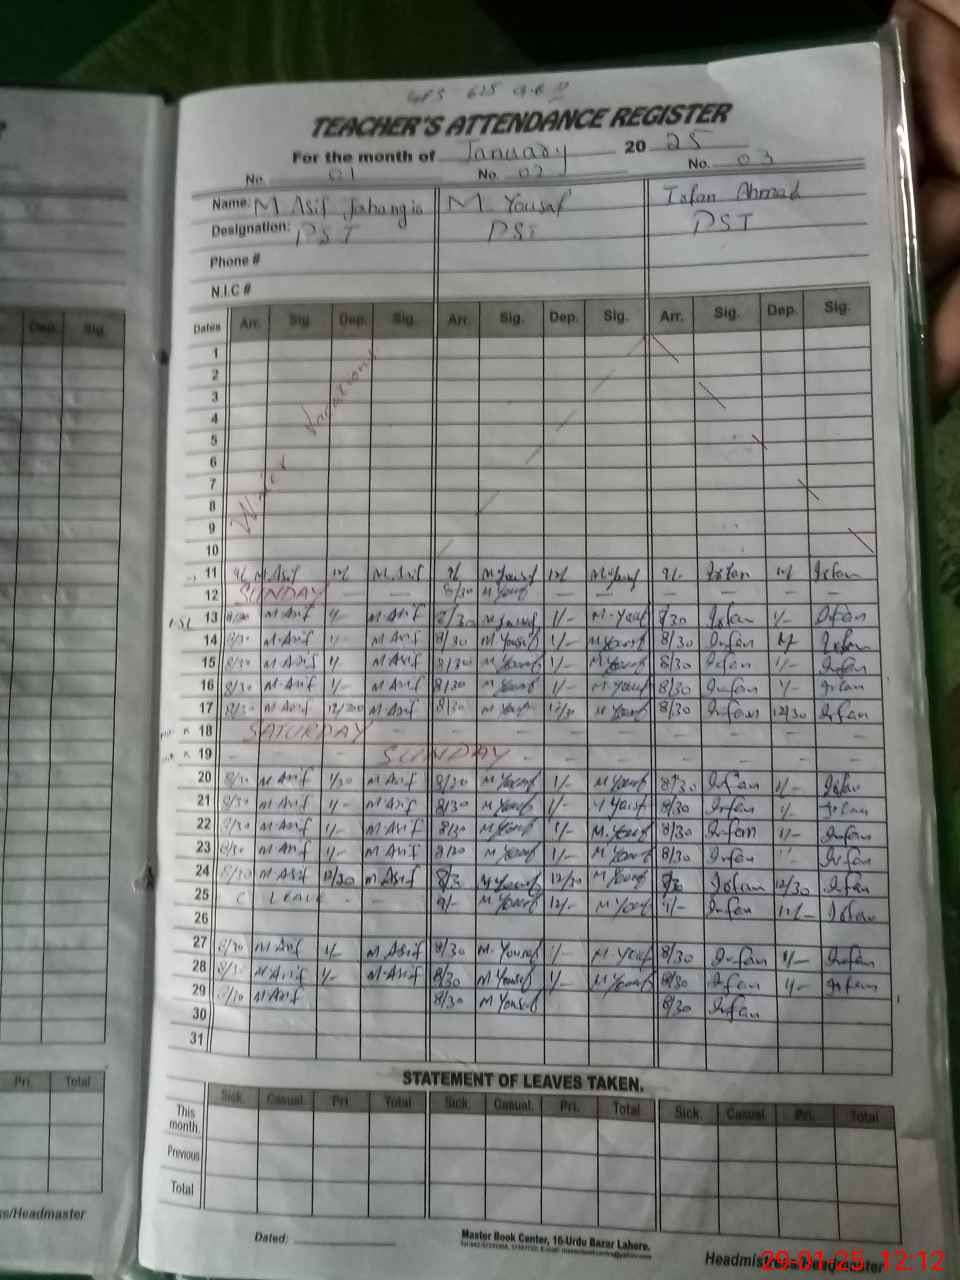 TEACHER'S ATTENDANCE REGISTER
For the month of January 20 25
No. 01 No. 02 No. 03
Name: M Asif Jahangir M Yousaf Irfan Ahmad
Designation: PST PST PST
Phone #
N.I.C #
Dep. Sig.
Dates Arr. Sig. Dep. Sig. Arr. Sig. Dep. Sig. Arr. Sig. Dep. Sig.
1
2
3
4
5
6
7
8
9
10
Vacations
11 9/- M.Asif 12/- M.Asif 9/- M Yousf 12/- M.Yousf 9/- Irfan 12/- Irfan
12 SUNDAY — — 8/30 M Yousf — — — — — —
13 8/30 M.Asif 1/- M.Asif 8/30 M Yousf 1/- M.Yousf 8/30 Irfan 1/- Irfan
14 8/30 M.Asif 1/- M.Asif 8/30 M Yousf 1/- M Yousf 8/30 Irfan 1/- Irfan
15 8/30 M Asif 1/- M Asif 8/30 M Yousf 1/- M Yousf 8/30 Irfan 1/- Irfan
16 8/30 M.Asif 1/- M.Asif 8/30 M Yousf 1/- M.Yousf 8/30 Irfan 1/- Irfan
17 8/30 M Asif 12/30 M.Asif 8/30 M Yousf 12/30 M Yousf 8/30 Irfan 12/30 Irfan
18 SATURDAY
19 SUNDAY
20 8/30 M Asif 1/30 M Asif 8/30 M Yousf 1/- M Yousf 8/30 Irfan 1/- Irfan
21 8/30 M.Asif 1/- M.Asif 8/30 M Yousf 1/- M Yousf 8/30 Irfan 1/- Irfan
22 8/30 M.Asif 1/- M.Asif 8/30 M Yousf 1/- M.Yousf 8/30 Irfan 1/- Irfan
23 8/30 M.Asif 1/- M Asif 8/30 M Yousf 1/- M Yousf 8/30 Irfan Irfan
24 8/30 M.Asif 12/30 M Asif 8/30 M Yousf 12/30 M Yousf 8/30 Irfan 12/30 Irfan
25 C LEAVE - - 9/- M Yousf 12/- M Yousf 9/- Irfan 12/- Irfan
26
27 8/30 M Asif 1/- M.Asif 8/30 M.Yousf 1/- M.Yousf 8/30 Irfan 1/- Irfan
28 8/30 M.Asif 1/- M.Asif 8/30 M Yousf 1/- M Yousf 8/30 Irfan 1/- Irfan
29 8/30 M Asif 8/30 M Yousf 8/30 Irfan
30
31
STATEMENT OF LEAVES TAKEN.
Pri. Total
Sick. Casual. Pri. Total Sick. Casual. Pri. Total Sick. Casual. Pri. Total
This month.
Previous
Total
ss/Headmaster
Dated:
Master Book Center, 16-Urdu Bazar Lahore.
29-01-25 12:12